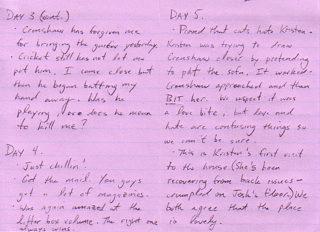 DAY 3 (cont.)
· Crenshaw has forgiven me
for bringing the guitar yesterday.
· Cricket still has not let me
pet him. I come close but
then he begins batting my
hand away. Was he
playing, or does he mean
to kill me?
DAY 4.
· Just chillin'.
Got the mail. You guys
get a lot of magazines.
· Was again amazed at the
litter box volume. The right one
always wins.
DAY 5.
· Proved that cats hate Kristen.
Kristen was trying to draw
Crenshaw closer by pretending
to pet the sofa. It worked-
Crenshaw approached and then
BIT her. We suspect it was
a love bite, but love and
hate are confusing things so
we can't be sure.
· This is Kristen's first visit
to the house (She's been
recovering from back issues-
crumpled on Josh's floor.) We
both agree that the place
is lovely.